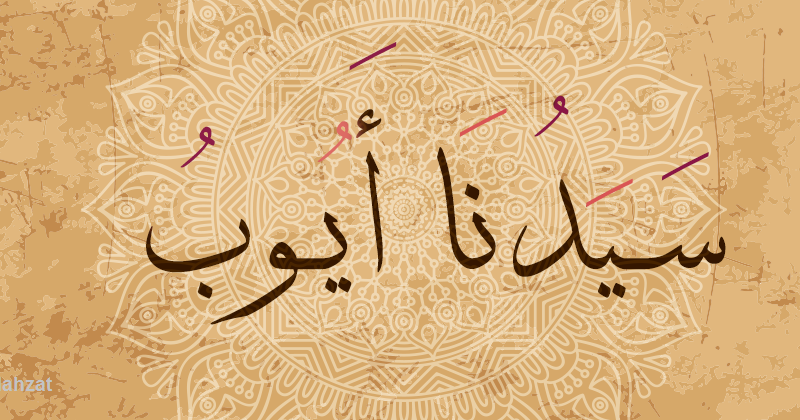 سَيَدُنَا أَيُوبُ
ahzat